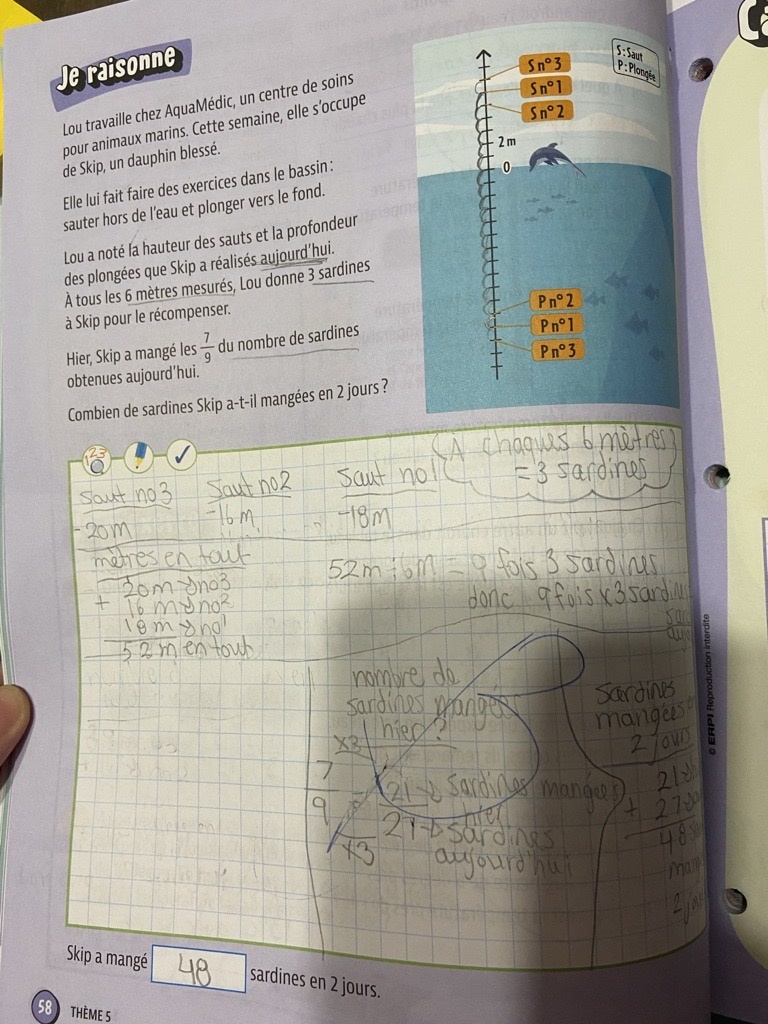 Je raisonne
Lou travaille chez AquaMédic, un centre de soins
pour animaux marins. Cette semaine, elle s'occupe
de Skip, un dauphin blessé.
Elle lui fait faire des exercices dans le bassin :
sauter hors de l'eau et plonger vers le fond.
Lou a noté la hauteur des sauts et la profondeur
des plongées que Skip a réalisés aujourd'hui.
À tous les 6 mètres mesurés, Lou donne 3 sardines
à Skip pour le récompenser.
Hier, Skip a mangé les 7/9 du nombre de sardines
obtenues aujourd'hui.
Combien de sardines Skip a-t-il mangées en 2 jours ?
S : Saut
P : Plongée
S nº 3
S nº 1
S nº 2
2 m
0
P nº 2
P nº 1
P nº 3
123
(À chaques 6 mètres)
= 3 sardines
Saut no3
-20m
Saut no2
-16m
Saut no1
-18m
mètres en tout
20m no3
+ 16m no2
18m no1
52m en tout
52m ÷ 6m = 9 fois 3 sardines
donc 9 fois x 3 sardines
nombre de
sardines mangées
hier ?
x3
7/9 = 21/27
21 sardines mangées
hier
27 sardines
aujourd'hui
x3
Sardines
mangées
2 jours
21
+ 27
48
2
Skip a mangé 48 sardines en 2 jours.
58 THÈME 5
© ERPI Reproduction interdite